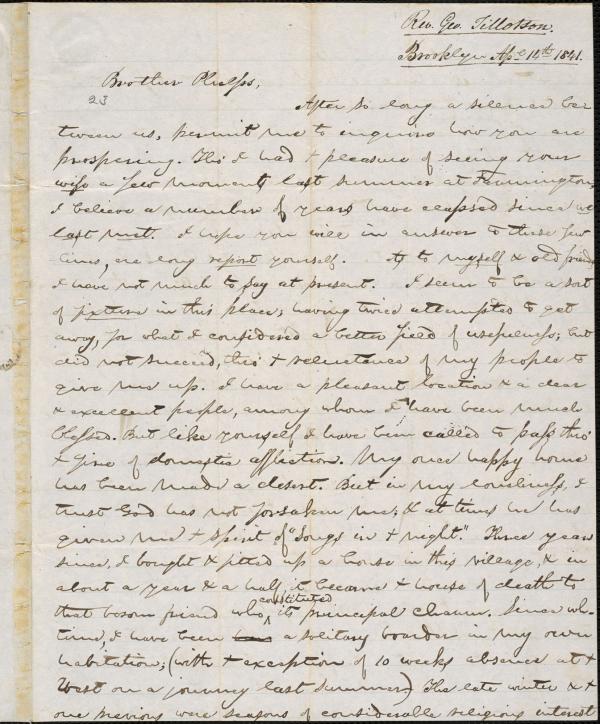 Rev. Geo. Tillotson.
Brooklyn Apl 14th 1841.
Brother Phelps,
23
After so long a silence be
tween us, permit me to inquire how you are
prospering. Tho' I had + pleasure of seeing your
wife a few moments last summer at Farmington,
I believe a number of years have elapsed since we
last met. I hope you will in answer to these few
lines, ere long report yourself. As to myself & old friends
I have not much to say at present. I seem to be a sort
of fixture in this place; having twice attempted to get
away, for what I considered a better field of usefulness; but
did not succeed, thro' + reluctance of my people to
give me up. I have a pleasant location & a dear
& excellent people, among whom I have been much
blessed. But like yourself I have been called to pass thro'
+ fire of domestic affliction. My once happy home
has been made a desert. But in my loneliness, I
trust God has not forsaken me; & at times he has
given me + spirit of "Songs in + night." Three years
since, I bought & fitted up a house in this village, & in
about a year & a half, it became + house of death to
that bosom friend who constituted its principal charm. Since wh.
time, I have been a solitary boarder in my own
habitation; (with + exception of 10 weeks absence at +
West on a journey last summer.) The late winter & +
one previous were seasons of considerable religious interest